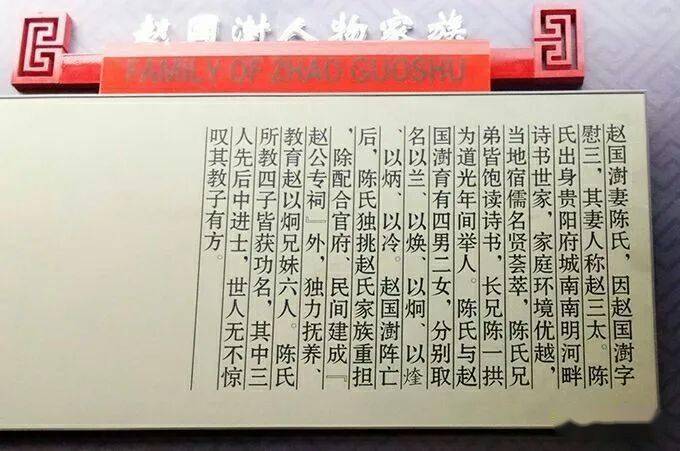 赵国澍人物家族
FAMILY OF ZHAO GUOSHU
赵国澍妻陈氏，因赵国澍字
慰三，其妻人称赵三太。陈
氏出身贵阳府城南南明河畔
诗书世家，家庭环境优越，
当地宿儒名贤荟萃，陈氏兄
弟皆饱读诗书，长兄陈一拱
为道光年间举人。陈氏与赵
国澍育有四男二女，分别取
名以兰、以焕、以炯、以煃
、以炳、以冷。赵国澍阵亡
后，陈氏独挑赵氏家族重担
，除配合官府、民间建成『
赵公专祠』外，独力抚养、
教育赵以炯兄妹六人。陈氏
所教四子皆获功名，其中三
人先后中进士，世人无不惊
叹其教子有方。